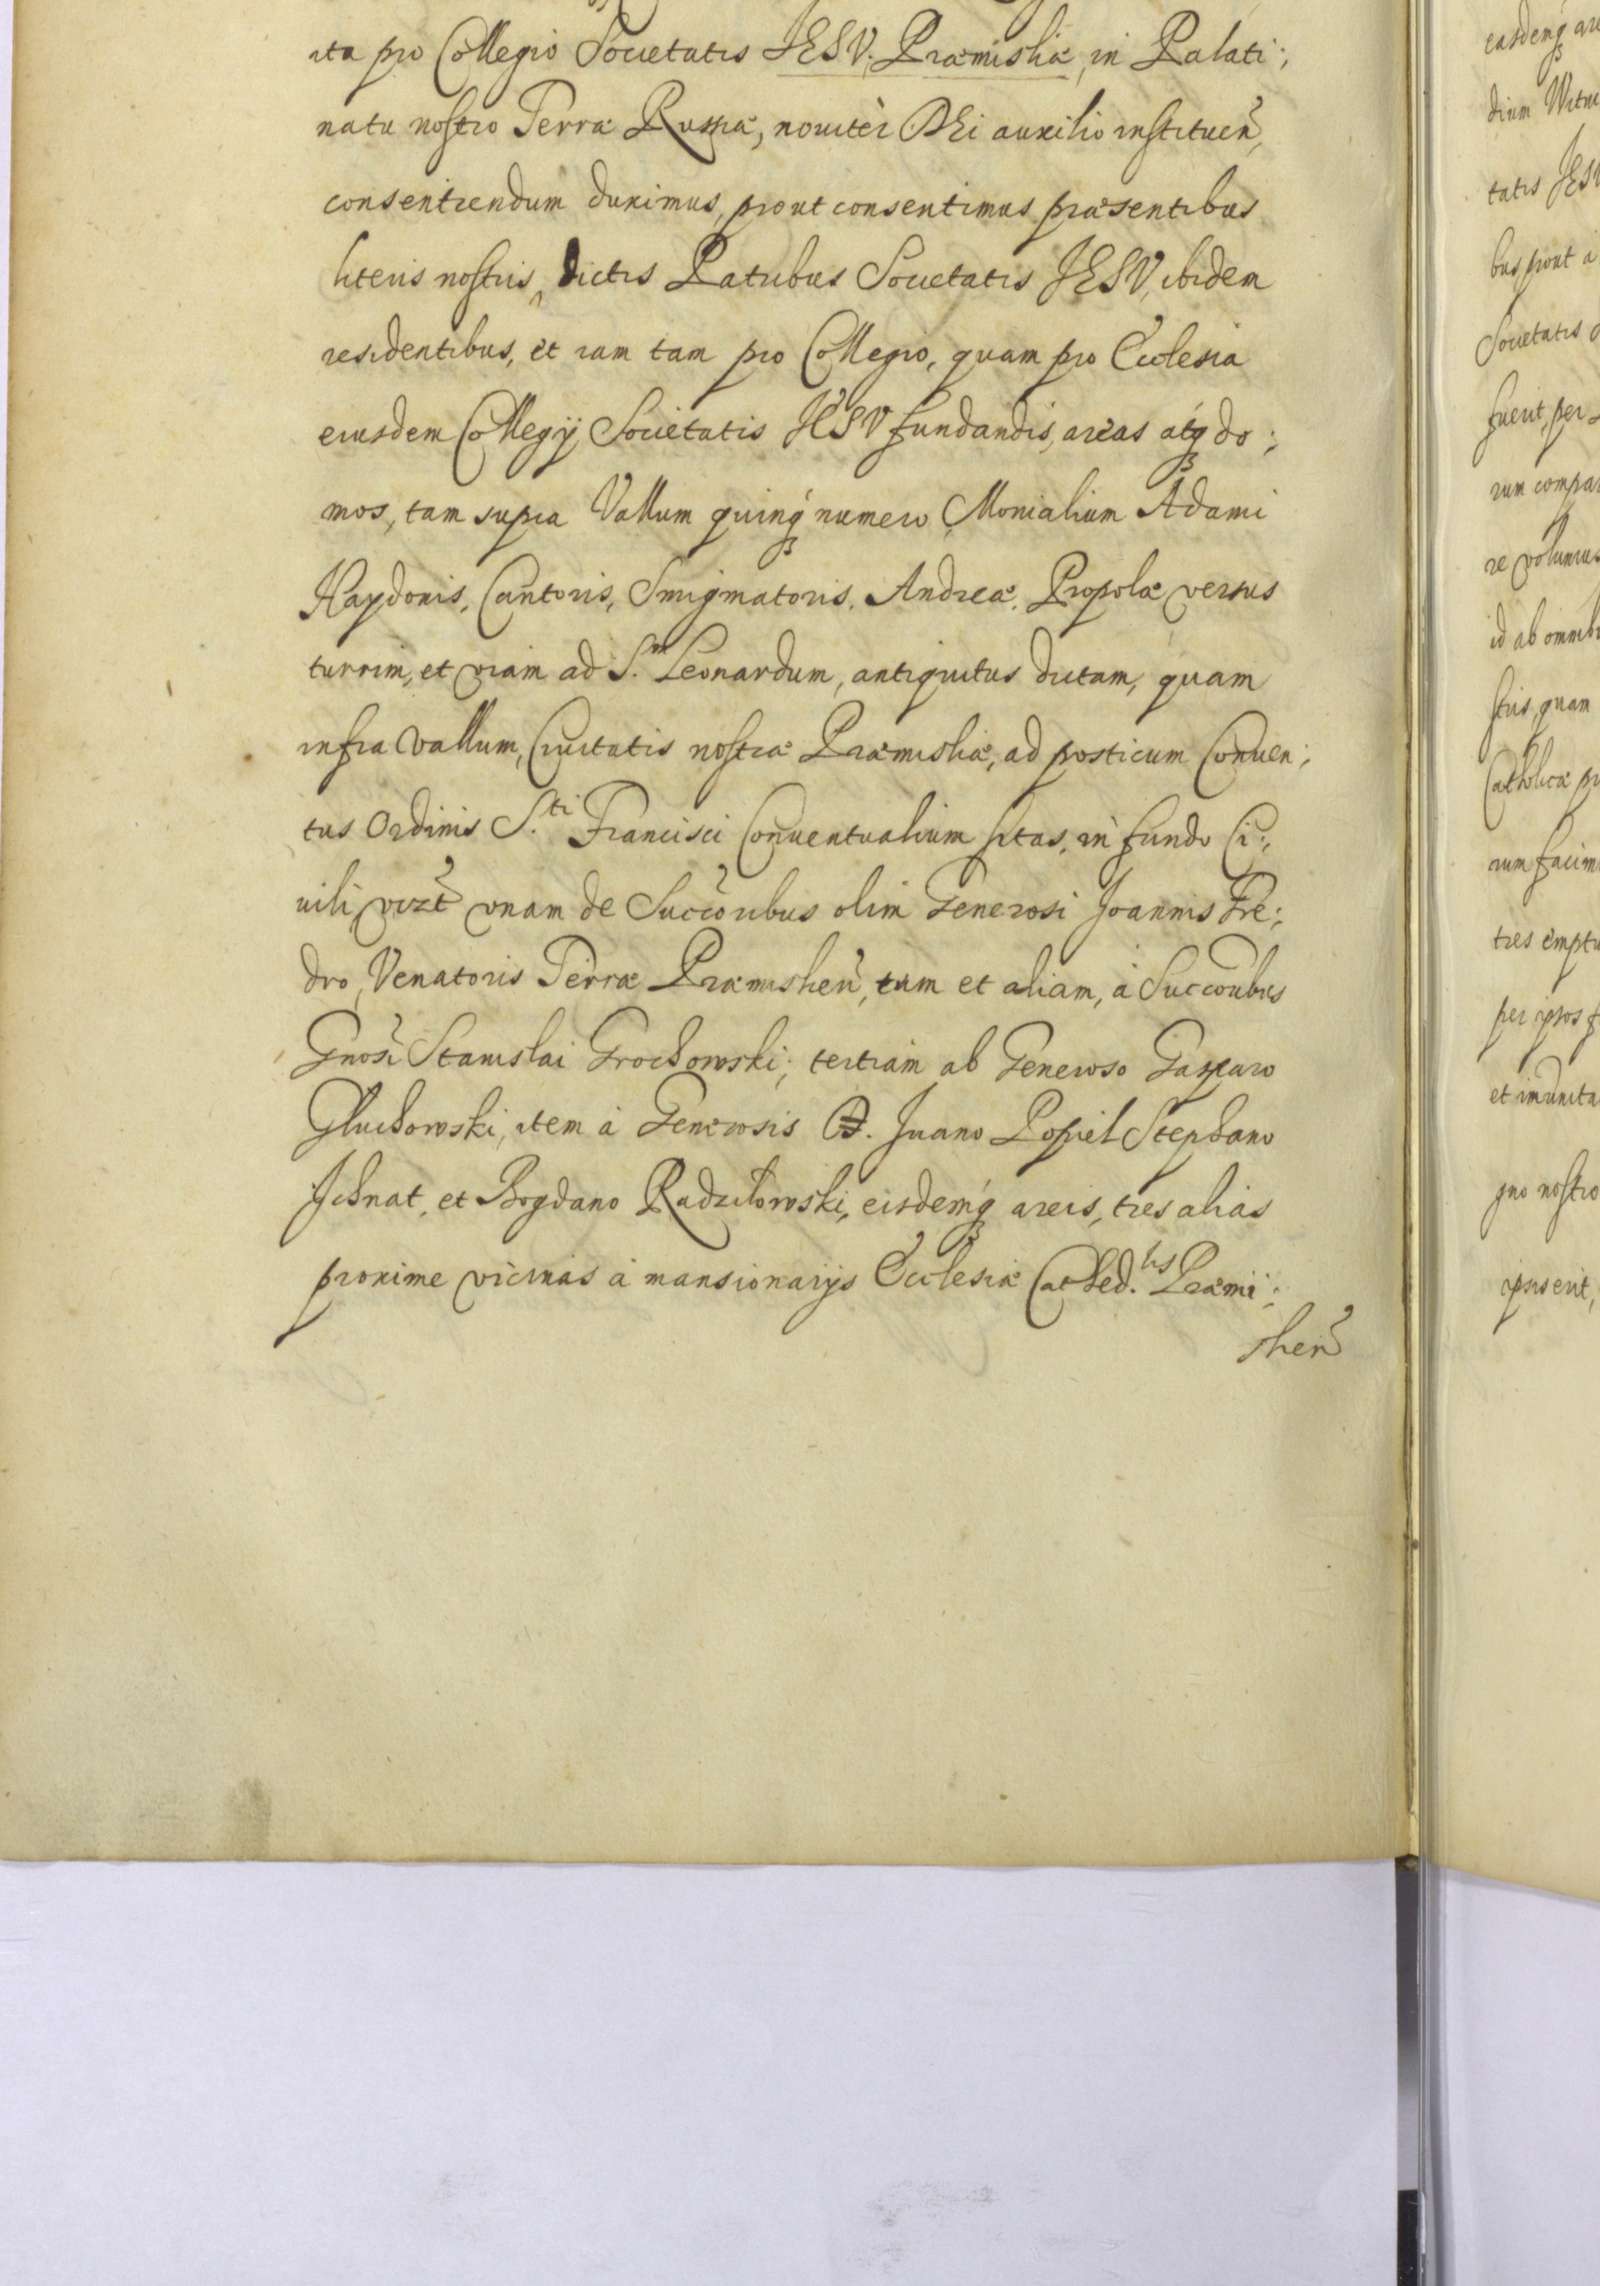 ita pro Collegio Societatis JESV, Præmisliæ, in Palati:,
natu nostro Terræ Russiæ, nouitèr DEi auxilio instituen̄,
consentiendum duximus, prout consentimus præsentibus
literis nostris, dictis Patribus Societatis JESV, ibidem
residentibus, et iam tam pro Collegio, quam pro Ecclesia
eiusdem Collegÿ Societatis JESV fundandis, areas atq́ do:,
mos, tam supra Vallum quinq́ numero, Monialium Adami
Haydonis, Cantoris, Smigmatoris, Andreæ, Propolæ versus
turrim, et viam ad S.m Leonardum, antiquitus dictam, quam
infra vallum, Ciuitatis nostræ Præmisliæ, ad posticum Conuen:,
tus Ordinis S.ti Francisci Conuentualium sitas, in fundo Ci:,
uili, vizt̄ vnam de Succ̄oribus olim Generosi Joannis Fre:,
dro, Venatoris Terræ Præmislien̄, tum et aliam, à Succ̄oribus
Gnosī Stanislai Grochowski; tertiam ab Generoso Gasparo
Gluchowski, item à Generosis Iuano Popiel Stephano
Ichnat, et Bogdano Radziłowski, eisdemq́ areis, tres alias
proxime vicinas à mansionarijs Ecclesiæ Cathed.lis Præmi:,
slien̄
easdemq́
dium
tatis JESV
bus prout a
Societatis
fuerit, per
rum compa
re volumus
id ab omnib
stris, quam
Catholicæ
rum facim
tres empt
per ipsos f
et imunita
gno nostro
ipsis erit,